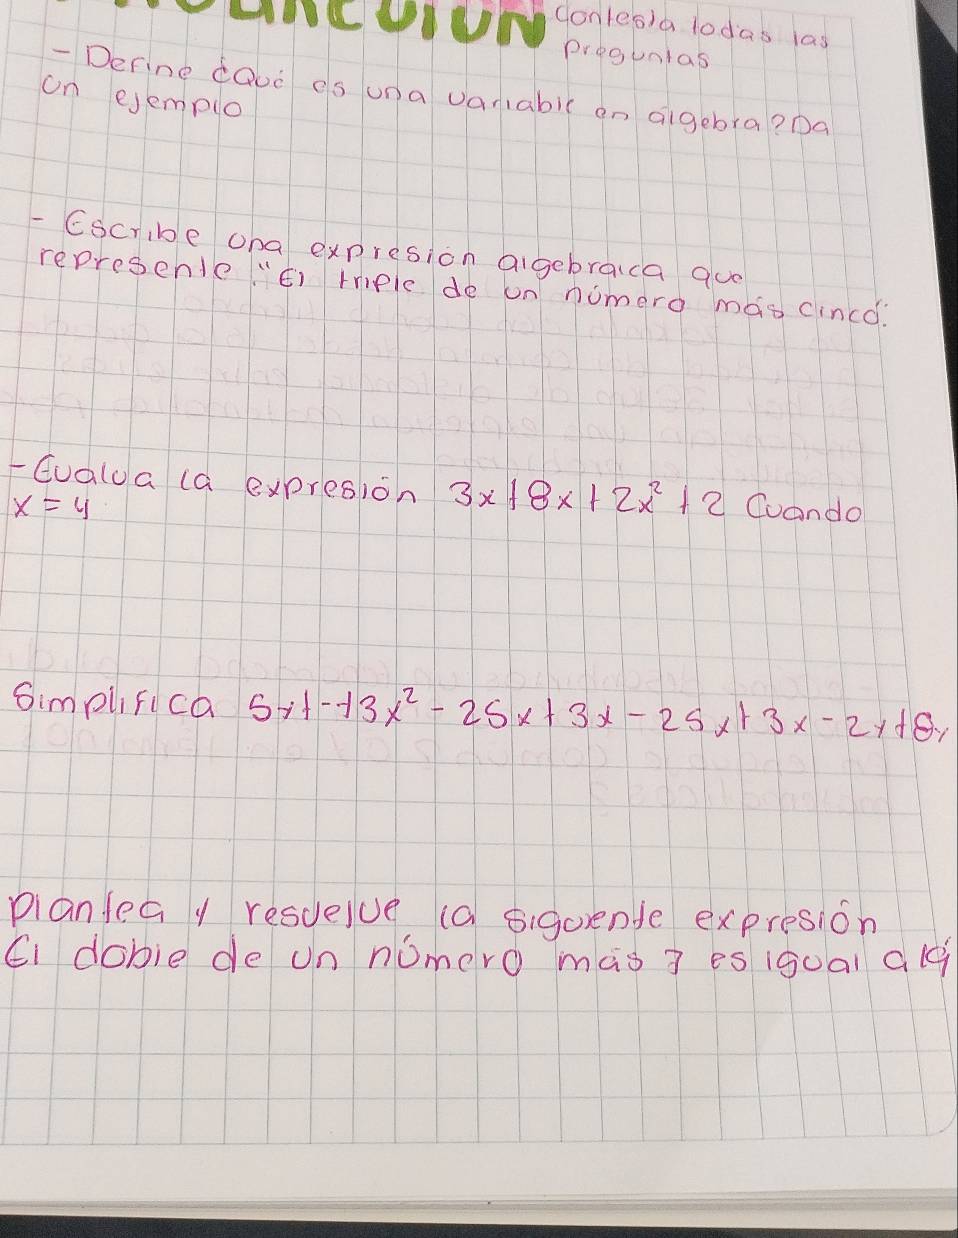 Contesta todas las
preguntas
- Define ¿Qué es una variable en álgebra? Da
un ejemplo
- Escribe una expresión algebraica que
represente "El triple de un número más cinco".
- Evalua la expresión 3x+8x+2x²+2 Cuando
x=4
Simplifica 5y+-13x²-25x+3x-25x+3x-2y+8y
Plantea y resuelve la siguiente expresión
El doble de un número más 7 es igual a